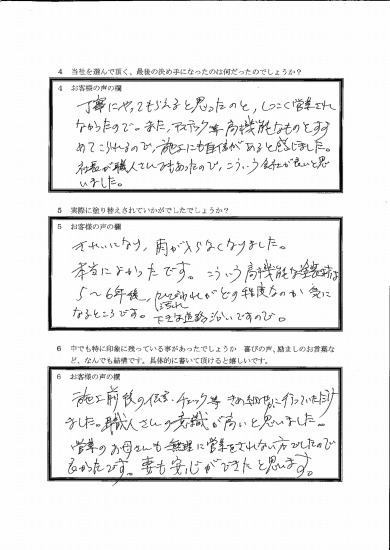 4 当社を選んで頂く、最後の決め手になったのは何だったのでしょうか?
4 お客様の声の欄
丁寧にやってもらえると思ったのと、しつこく営業され
なかったので。また、アステック等高機能なものをすす
めてこられるので、施工にも自信があると感じました。
社長が職人さんでもあったので、こういう会社が良いと思
いました。
5 実際に塗り替えされていかがでしたでしょうか?
5 お客様の声の欄
きれいになり、雨が入らなくなりました。
本当によかったです。こういう高機能な塗装は
5〜6年後、ひびわれがどの程度なのか気に
汚れ
なるところです。 道路沿いですので。
6 中でも特に印象に残っている事があったでしょうか 喜びの声、励ましのお言葉な
ど、なんでも結構です。具体的に書いて頂けると嬉しいです。
6 お客様の声の欄
施工前後の伝言・チェック等きめ細やかに行っていただけ
ました。職人さんの意識が高いと思いました。
営業のお母さんも無理に営業をされない方でしたので
良かったです。妻も安心ができたと思います。